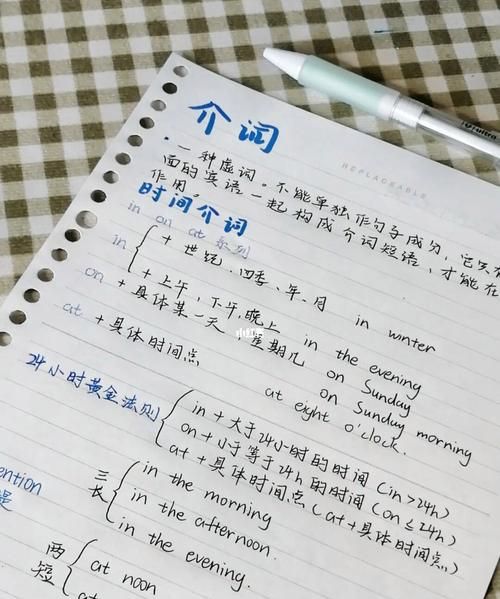 REPLACEABLE
介词
一种虚词。不能单独作句子成分,它只有
面的宾语一起构成介词短语,才能在
作用。
时间介词
in on at 系列
in + 世纪、四季、年、月 in winter
+ 上午,下午,晚上 in the evening
on + 具体某一天,星期几 on Sunday
on Sunday morning
at + 具体时间点 at eight o'clock.
小红书
24小时黄金法则
in + 大于24小时的时间 (in > 24h)
on + 小于等于24h的时间 (on ≤ 24h)
at + 具体时间点 (at + 具体时间点)
ention
提
三长
in the morning
in the afternoon.
in the evening.
两短
at noon
at
ultra